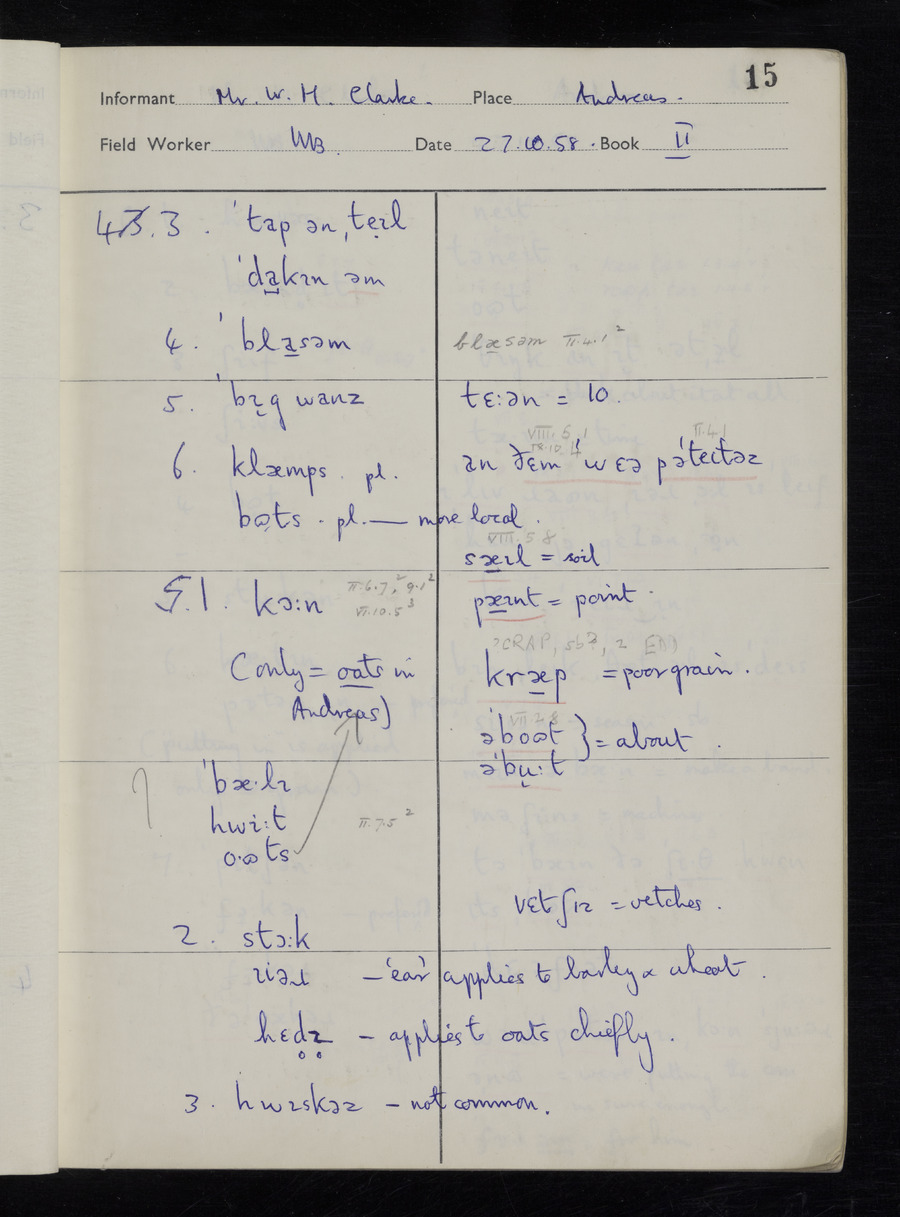 15
Informant Mr. W. H. Clarke. Place Andreas.
Field Worker MB Date 27.10.58. Book II
4.3. ˈtap ən ˌteɪl
ˈda̱kɪn əm
4. ˈbla̱səm
blæsəm II.4.1²
5. ˈbɪ̣g wanz
tɛ:ən = 10.
VIII.5.1 II.4.1
6. klæmps. pl.
ən ðɛm wɛə pəˈteɪtəz
bɷts. pl. — more local.
VIII.5.8
sæɪl = soil
5.1. kɔ:n II.6.7,² 9.1²
VI.10.5³
pæɪnt = point.
?CRAP, sb², 2 EDD
(only = oats in
Andreas)
kræp = poor grain.
VII.2.8
əˈboɷt } = about.
əˈbụ:t
ˈbæ·lɪ
hwi:t II.7.5²
o·ɷts
vɛtʃɪz = vetches.
2. stɔ:k
iəɹ – 'ear' applies to barley & wheat.
hɛdz̥ – applies to oats chiefly.
3. hwɪskəz – not common.